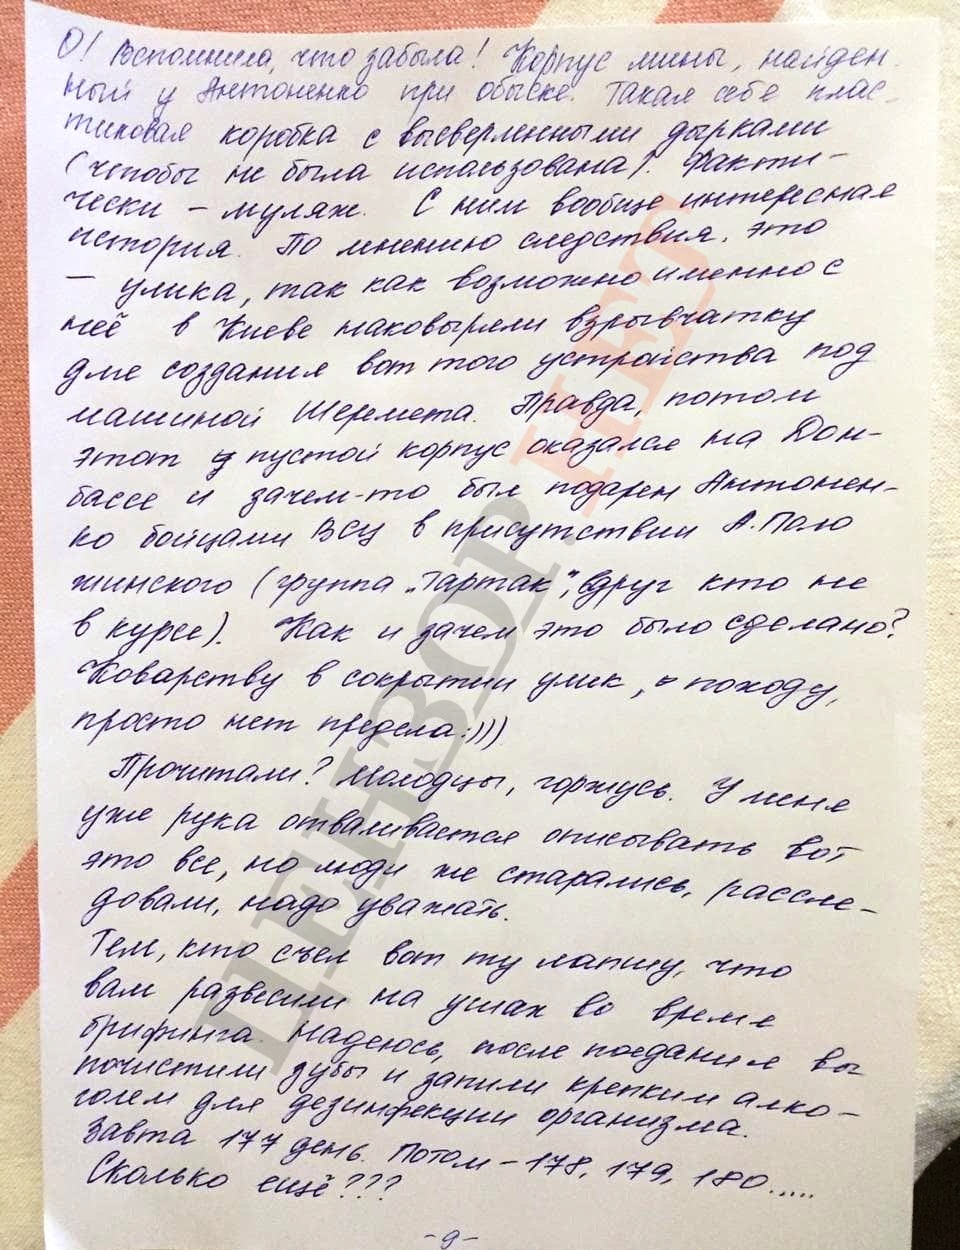 О! Вспомнила, что забыла! Корпус мины, найден-
ный у Антоненко при обыске. Такая себе плас-
тиковая коробка с высверленными дырками
(чтобы не была использована). Факти-
чески – муляж. С ним вообще интересная
история. По мнению следствия, это
– улика, так как возможно именно с
неё в Киеве наковыряли взрывчатку
для создания вот того устройства под
машиной Шеремета. Правда, потом
этот пустой корпус оказался на Дон-
бассе и зачем-то был подарен Антонен-
ко бойцами ВСЦ в присутствии А. Поло
жинского (группа „Тартак", вдруг кто не
в курсе). Как и зачем это было сделано?
Коварству в сокрытии улик, походу,
просто нет предела:)))
Прочитали? Молодцы, горжусь. У меня
уже рука отваливается описывать вот
это все, но люди же старались, рассле-
довали, надо уважать.
Тем, кто съел вот ту лапшу, что
вам развесили на ушах во время
брифинга. Надеюсь, после поедания вы
почистили зубы и запили крепким алко-
голем для дезинфекции организма.
Завта 177 день. Потом – 178, 179, 180.....
Сколько ещё???
-9-
ЦЕНЗОР.НЕТ